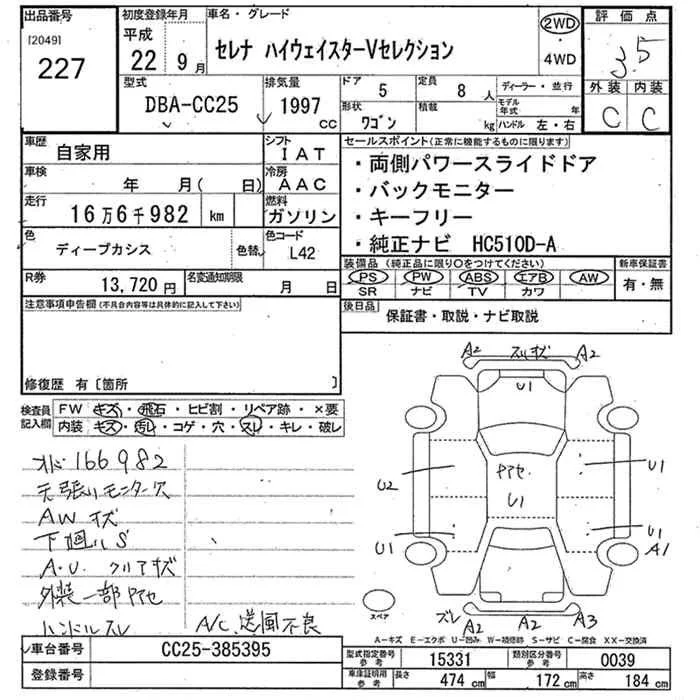 出品番号
[2049]
227
初度登録年月
平成
22 9 月
車名・グレード
セレナ ハイウェイスターVセレクション
2WD
・
4WD
評価点
3.5
外装 内装
C C
型式
DBA-CC25
排気量
1997
CC
ドア
5
定員
8 人
形状
ワゴン
積載
kg
ディーラー・並行
モデル年式 年
ハンドル 左・右
車歴
自家用
シフト
IAT
車検
年 月( 日)
冷房
AAC
走行
16万6千982 km
燃料
ガソリン
色
ディープカシス
色替
色コード
L42
R券
13,720 円
名変通知期限
月 日
セールスポイント(正常に機能するものに限ります)
・両側パワースライドドア
・バックモニター
・キーフリー
・純正ナビ HC510D-A
装備品(純正品に限り○をつけてください)
PS PW ABS エアB AW
SR ナビ TV カワ
新車保証書
有・無
後日品
保証書・取説・ナビ取説
注意事項申告欄(不具合内容等は具体的に記入して下さい)
修復歴 有〔箇所 〕
検査員記入欄
FW キズ・飛石・ヒビ割・リペア跡・×要
内装 キズ・汚レ・コゲ・穴・スレ・キレ・破レ
166982
天張りモニター穴
AW キズ
下廻り S
A.U. クリアキズ
外装一部ヤケ
ハンドルスレ
A/C 送風不良
A2 スレキズ A2
U1
U2
U1
U1
U1
U1
A1
スペア
ズレ
A2
A2
A3
A-キズ E-エクボ U-凹み W-補修跡 S-サビ C-腐食 XX-交換済
車台番号
CC25-385395
登録番号
型式指定番号
参考
15331
類別区分番号
参考
0039
車庫証明用
参考
長さ
474 cm
幅
172 cm
高さ
184 cm